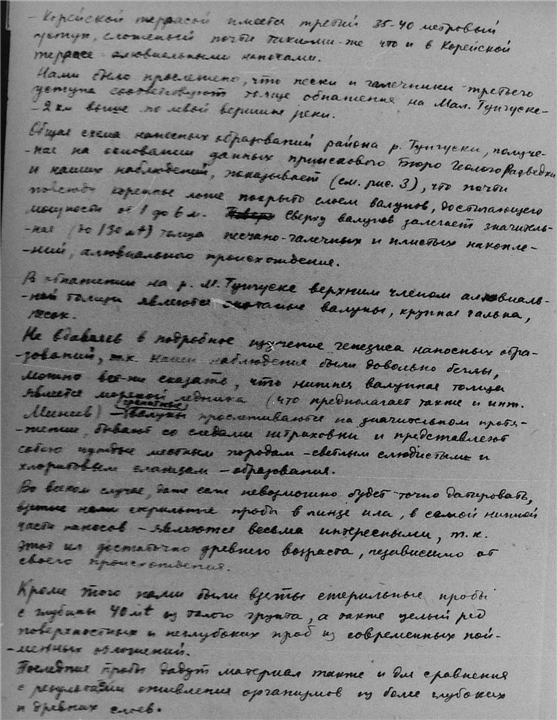 - Корейской террасой имеется третий 35-40 метровый
уступ, сложенный почти такими-же что и в Корейской
террасе аллювиальными наносами.
Нами было прослежено, что пески и галечники третьего
уступа соответствуют толще обнажения на Мал. Тунгуске-
-2 км выше по левой вершине реки.
Общая схема наносных образований района р. Тунгуски, получе-
-ная на основании данных приискового Бюро Геологоразведки
и наших наблюдений, показывает (см. рис. 3), что почти
повсюду коренное ложе покрыто слоем валунов, достигающего
мощности от 1 до 6 м. Сверху валунов залегает значитель-
-ная (до 130 mt) толща песчано-галечных и илистых накопле-
-ний, аллювиального происхождения.
В обнажении на р. М. Тунгуске верхним членом аллювиаль-
-ной толщи являются окатаные валуны, крупная галька,
песок.
Не вдаваясь в подробное изучение генезиса наносных обра-
-зований, т.к. наши наблюдения были довольно беглы,
можно всё-же сказать, что нижняя валунная толща
является мореной ледника (что предполагает также и инж.
Минеев) гранитные валуны прослеживаются на значительном протя-
-жении, бывают со следами штриховки и представляют
собою чуждые местным породам - светлым слюдистым и
хлоритовым сланцам - образования.
Во всяком случае, даже если невозможно будет точно датировать,
взятые нами стерильные пробы в линзе ила, в самой нижней
части наносов - являются весьма интересными, т.к.
этот ил достаточно древнего возраста, независимо от
своего происхождения.
Кроме того нами были взяты стерильные пробы
с глубины 40 mt из талого грунта, а также целый ряд
поверхностных и неглубоких проб из современных пой-
-менных отложений.
Последние пробы дадут материал также и для сравнения
с результатами оживления организмов из более глубоких
и древних слоев.